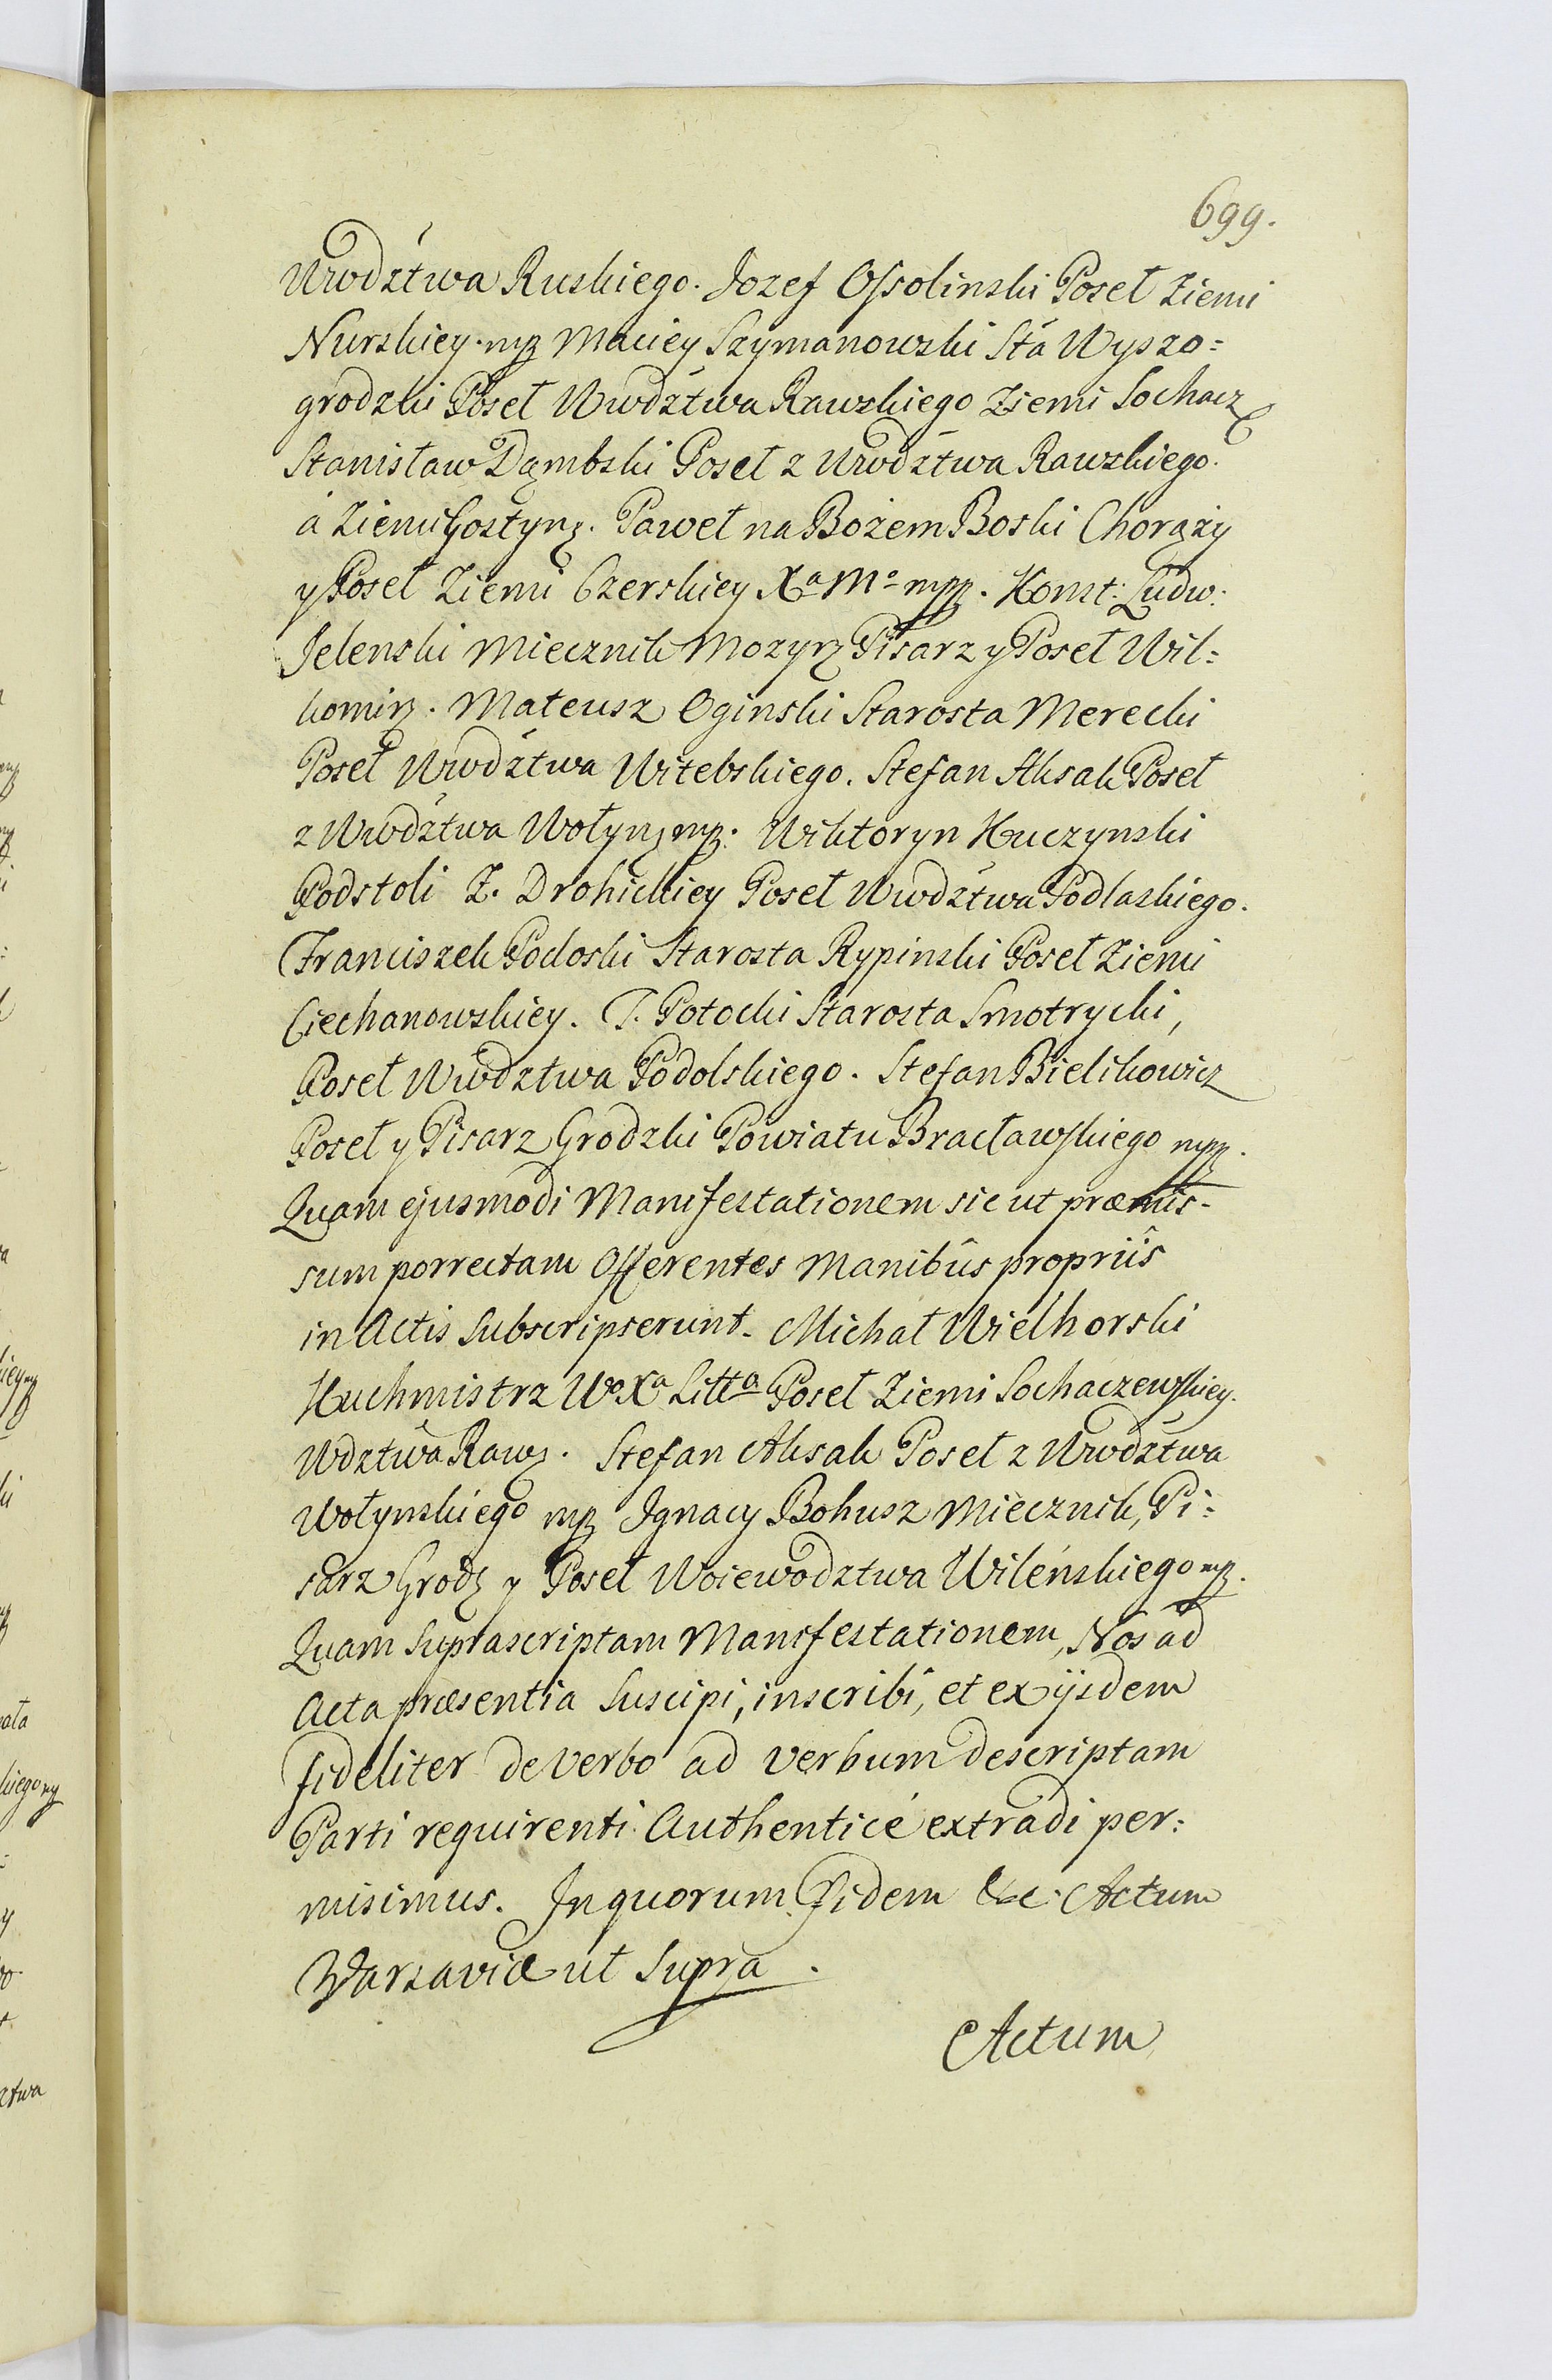 699.
Wwodztwa Ruskiego. Jozef Ossolinski Poseł Ziemi
Nurskiey. mp Maciey Szymanowski Sta Wyszo=
grodzki Poseł Wwdztwa Rawskiego Ziemi Sochacz
Stanisław Dąmbski Poseł z Wwodztwa Rawskiego.
a Ziemi Gostyn. Paweł na Bożem Boski Chorąży
y Poseł Ziemi Czerskiey Xa Mo mpp. Konst: Ludw:
Jelenski Miecznik Mozyr Pisarz y Poseł Wił=
komir. Mateusz Oginski Starosta Merecki
Poseł Wwodztwa Witebskiego. Stefan Aksak Poseł
z Wwodztwa Wołyn mp. Wiktoryn Kuczynski
Podstoli Z. Drohickiey Poseł Wwodztwa Podlaskiego.
Franciszek Podoski Starosta Rypinski Poseł Ziemi
Ciechanowskiey. T. Potocki Starosta Smotrycki,
Poseł Wwodztwa Podolskiego. Stefan Bielikowicz
Poseł y Pisarz Grodzki Powiatu Bracławskiego mpp.
Quam ejusmodi Manifestationem sic ut præmis-
sum porrectam Offerentes Manibûs propriîs
in Actis Subscripserunt. Michał Wielhorski
Kuchmistrz Wo Xa Litto Poseł Ziemi Sochaczewskiey.
Wdztwa Raw. Stefan Aksak Poseł z Wwodztwa
Wołynskiego mp Ignacy Bohusz Miecznik, Pi=
sarz Grodz y Poseł Woiewodztwa Wileńskiego mp.
Quam Suprascriptam Manifestationem, Nos ad
Acta præsentia Suscipi, inscribi, et ex ijsdem
fideliter de Verbo ad Verbum descriptam
Parti requirenti Authenticè extradi per=
misimus. In quorum Fidem &c. Actum
Varsaviæ ut Supra.
Actum